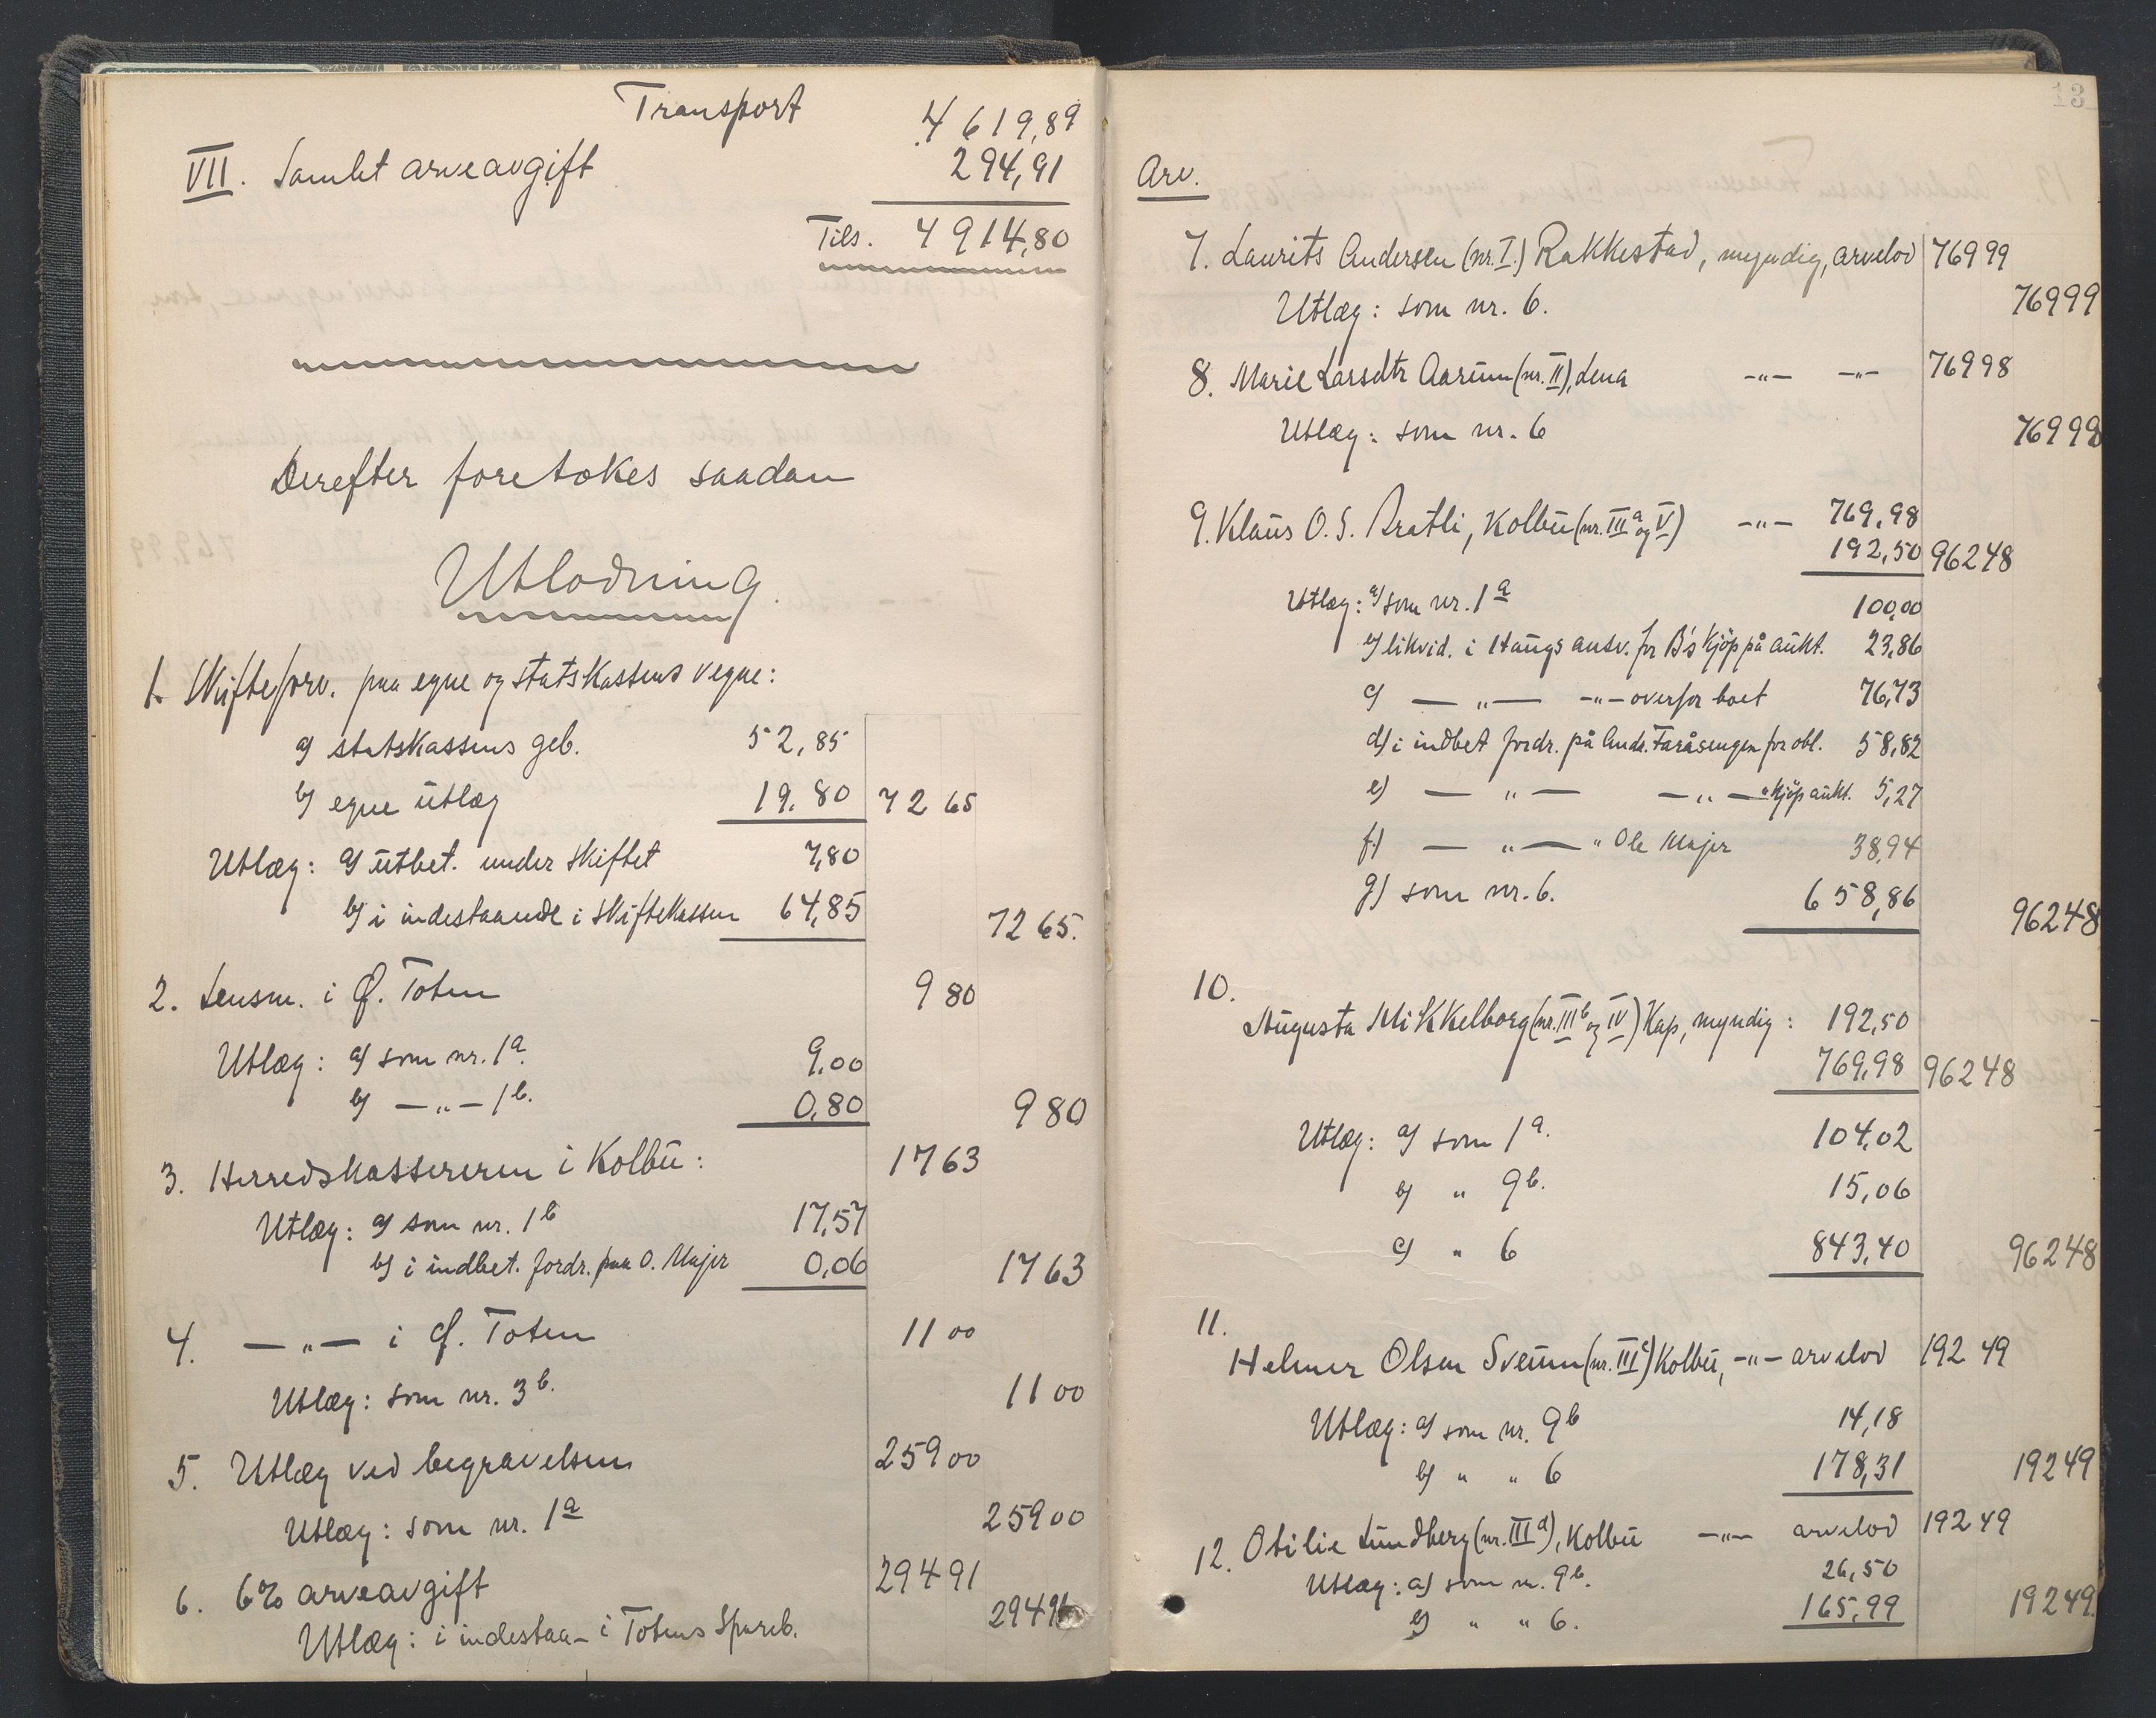 Transport 4619,89
VII. Samlet arveavgift 294,91
Tils. 4914,80
Derefter foretokes saadan
Utlodning.
1. Skifteforv. paa egne og statskassens vegne:
a) statskassens geb. 52,85
b) egne utlæg 19,80 72 65
Utlæg: a) utbet. under skiftet 7,80
b) i indestaaende i skiftekassen 64,85 72 65.
2. Lensm. i Ø. Toten 9 80
Utlæg: a) som nr. 1a. 9,00
b) —„— 1b. 0,80 9 80
3. Herredskassereren i Kolbu: 17 63
Utlæg: a) som nr. 1b 17,57
b) i indbet. fordr. paa O. Majer 0,06 17 63
4. —„— i Ø. Toten 11 00
Utlæg: som nr. 3b. 11 00
5. Utlæg ved begravelsen 259 00
Utlæg: som nr. 1a 259 00
6. 6% arveavgift 294 91
Utlæg: i indestaa- i Totens Spareb. 294 91
13
Arv.
7. Laurits Andersen (nr. I.) Rakkestad, myndig, arvelod 769 99
Utlæg: som nr. 6. 769 99
8. Marie Larsdtr Aarum (nr. II), Lena —„— —„— 769 98
Utlæg: som nr. 6 769 98
9. Klaus O. S. Bratli, Kolbu (nr. IIIa og V) —„— 769,98
192,50 962 48
Utlæg: a) som nr. 1a 100,00
b) likvid. i Haugs ansv. for B's kjöp på aukt. 23,86
c) —„— —„— overfor boet 76,73
d) i indbet fordr. på Andr. Faråsengen for obl. 58,82
e) —„— —„— " kjöp aukt. 5,27
f) —„— " Ole Majer 38,94
g) som nr. 6. 658,86 962 48
10.
Augusta Mikkelborg (nr. IIIb og IV) Kap, myndig: 192,50
769,98 962 48
Utlæg: a) som 1a. 104,02
b) " 9b. 15,06
c) " 6 843,40 962 48
11.
Helmer Olsen Sveum (nr. IIIc) Kolbu, —„— arvelod 192 49
Utlæg: a) som nr. 9b 14,18
b) " " 6 178,31 192 49
12. Otilie Lundberg (nr. IIId), Kolbu —„— arvelod 192 49
Utlæg: a) som nr. 9b. 26,50
b) " " 6. 165,99 192 49.